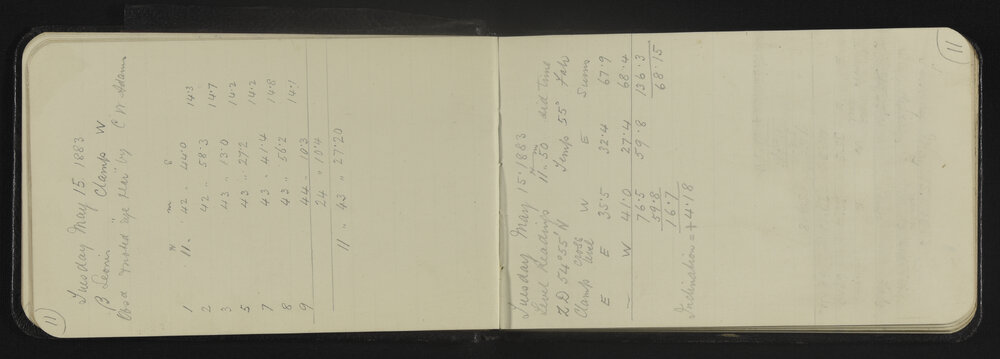 11
Tuesday May 15 1883
β Leonis Clamp W
Obsd method "eye & ear" by C W Adams
h m s
1 11 .. 42 .. 44.0 14.3
2 42 .. 58.3 14.7
3 43 .. 13.0 14.2
5 43 .. 27.2 14.2
7 43 .. 41.4 14.8
8 43 .. 56.2 14.1
9 44 .. 10.3
24 " 10.4
11 " 43 " 27.20
11
Tuesday May 15.1883
Level Readings 11h 50m sid time
ZD 54°55' N Temp 55° Fah
Clamp Cross level W E Sums
E E 35.5 32.4 67.9
— W 41.0 27.4 68.4
76.5 59.8 136.3
59.8 68.15
16.7
Inclination = + 4.18